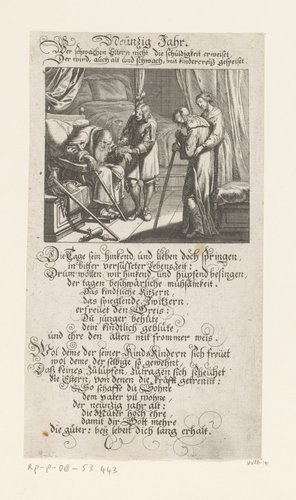 Neünzig Jahr.
Wer schwachen Eltern nicht die schüldigkeit erweiset,
Der wird, auch alt und schwach, mit kinderereiß gespeiset.
Die Tage sein hinkend, und lieben doch springen,
in bitter versüsseter Lebenszeit:
Drum wollen wir hinkend und hüpfend besingen,
der tagen beschwärliche mühsamkeit.
Das kindliche Kitzern,
das spieglende
erfreuet den Greis:
Du jünger behüte,
dein kindlich geblüte
und ehre den alten mit frommer weis.
Wol deme der seiner Kinds Kindern sich freüet
wol deme der selbige so gewehnt,
Daß keines zulüpfen, zutragen sich scheühet
die Eltern, von denen die krafft getrennt:
So schaffe du Sohne
dem vater vil wohne
der neünzig jahr alt:
die Müter hoch ehre,
damit dir Gott mehre
die güter: deß lebest dich lang erhalt.
RP-P-OB-53.443